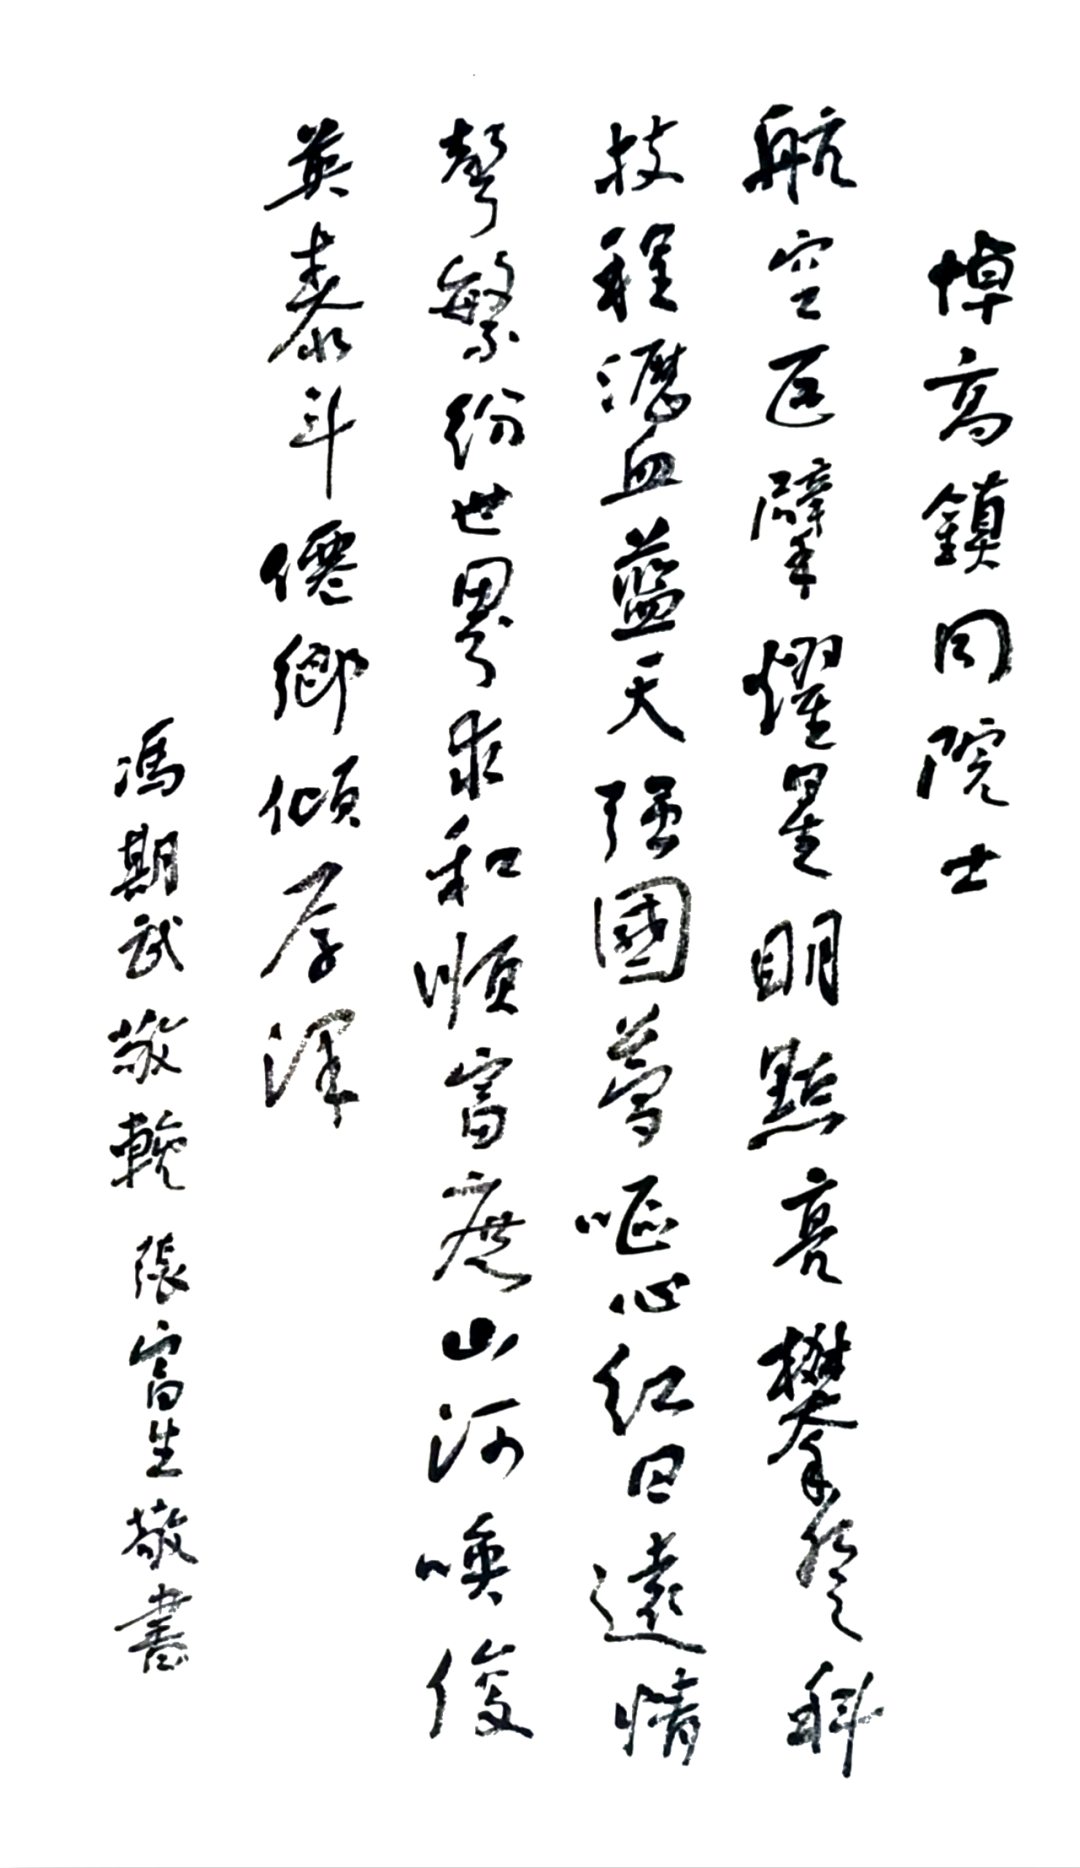 悼高鎮同院士
航空巨擘耀星明點亮攀登科
技程瀝血藍天强國夢嘔心紅日遠情
聲繁紛世界求和順富庶山河喚俊
英泰斗僊鄉傾厚泽
馮期武敬輓 張富生敬書